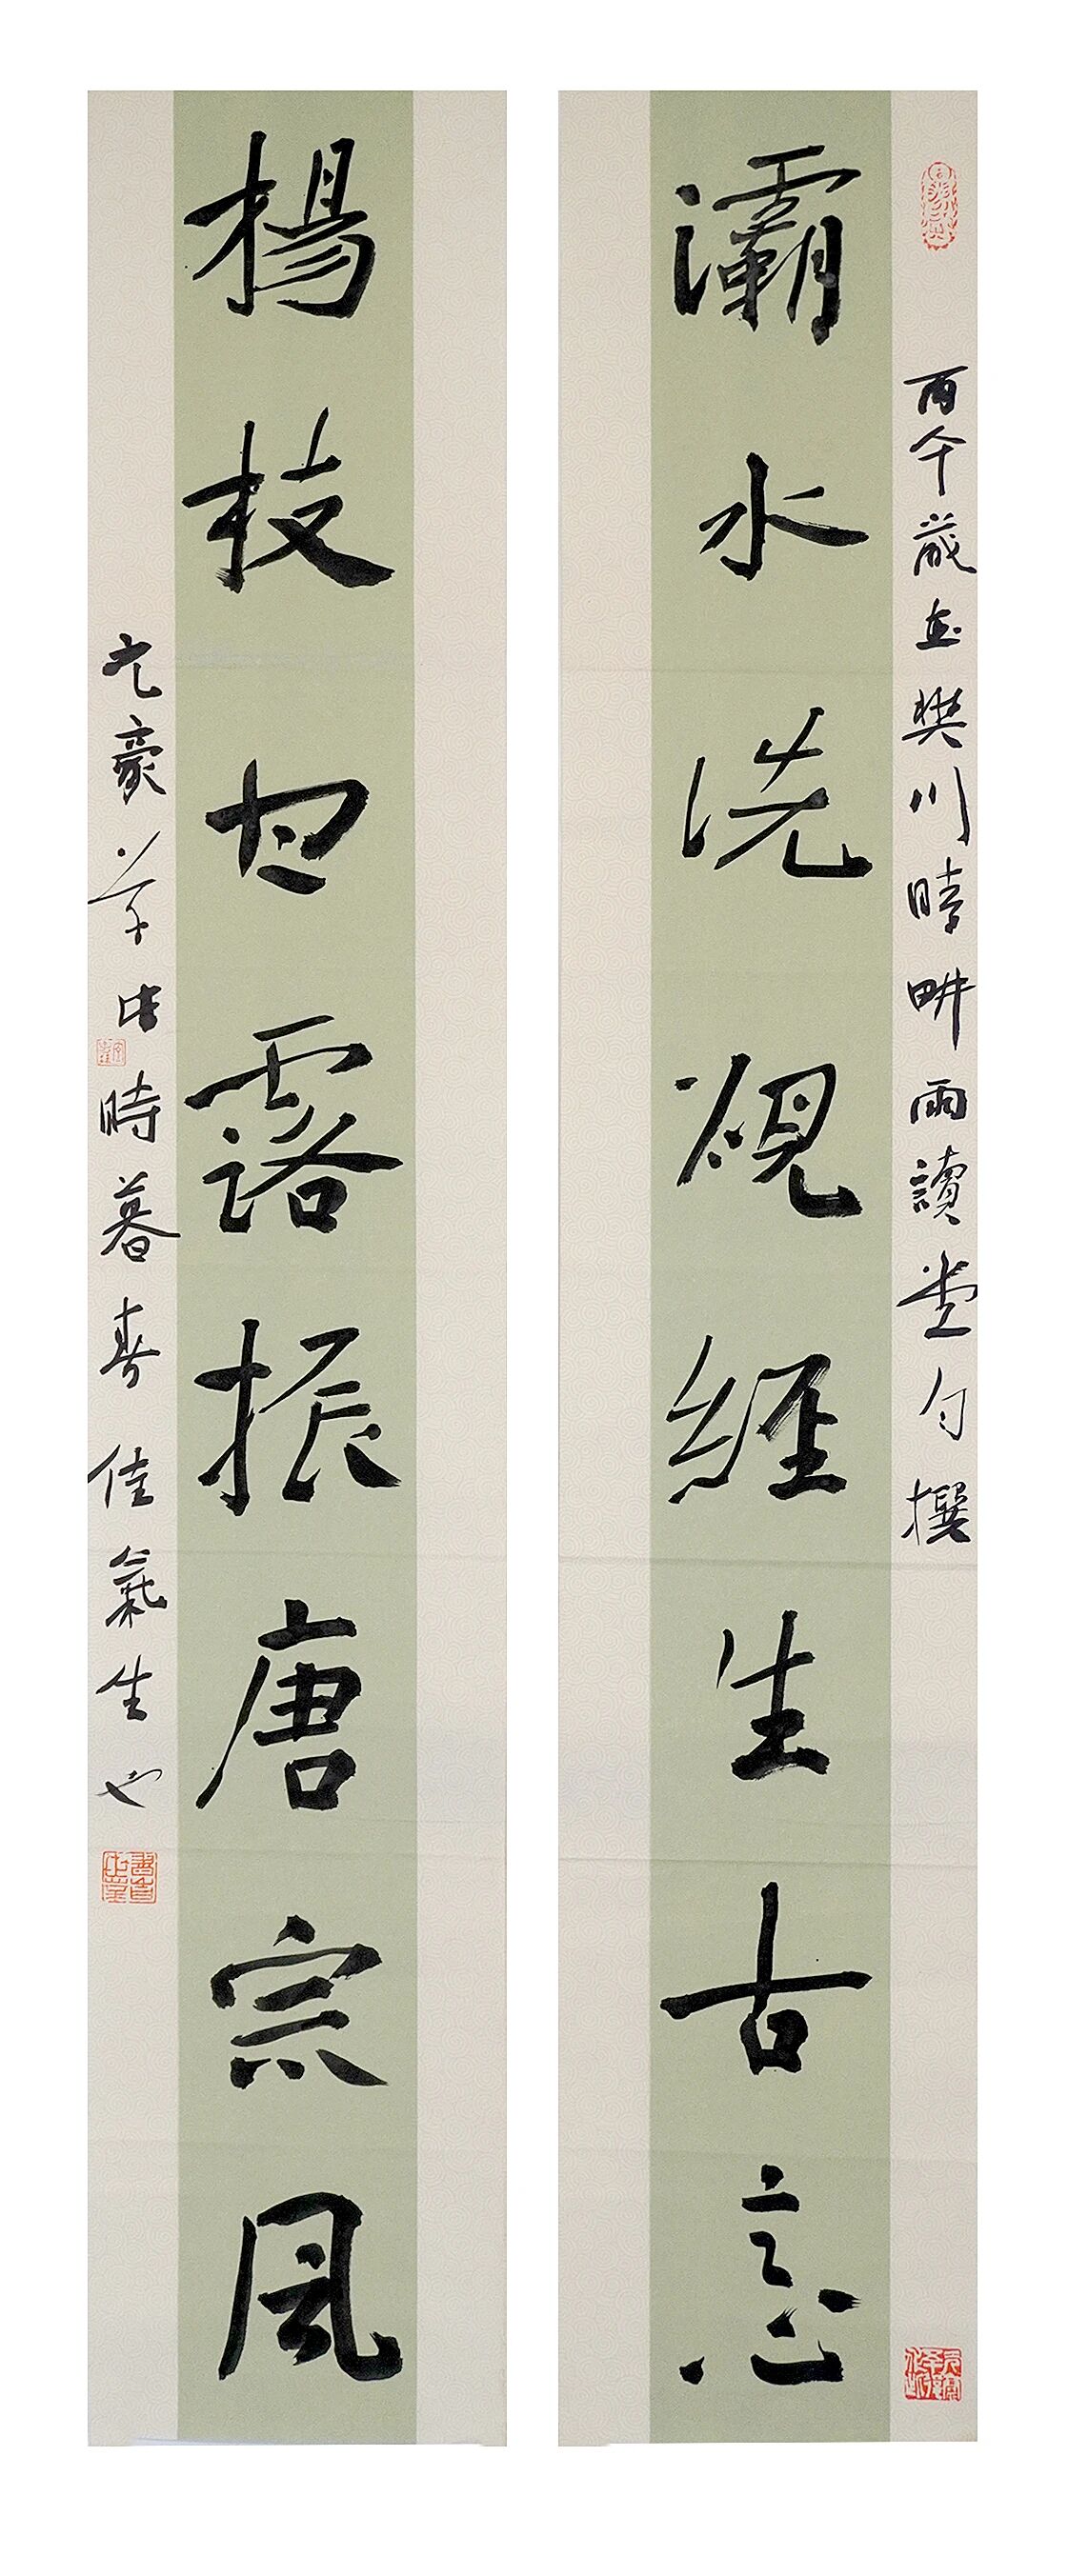 丙午歲在樊川晴畊雨讀堂撰
灞水洗硯經生古意
楊枝甘露振唐宗風
元豪草時暮春佳氣生也